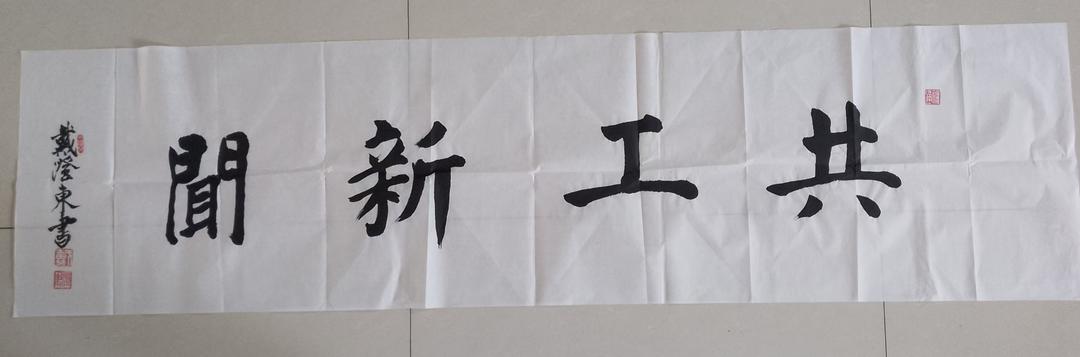 共工新聞
戴澄東書